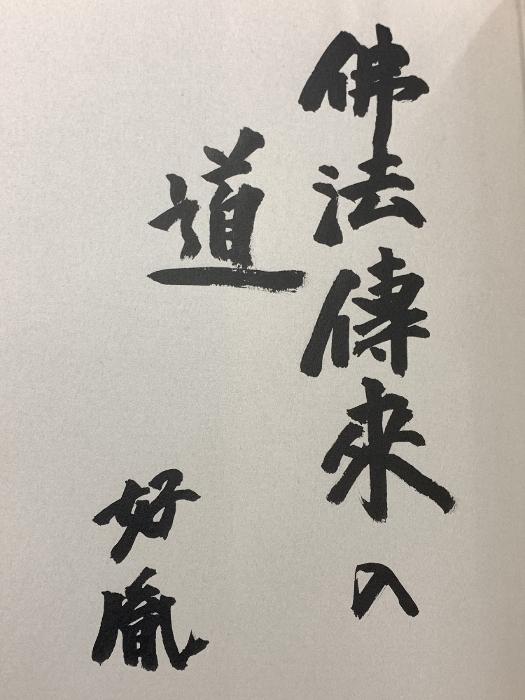 佛法傳來の
道
好胤